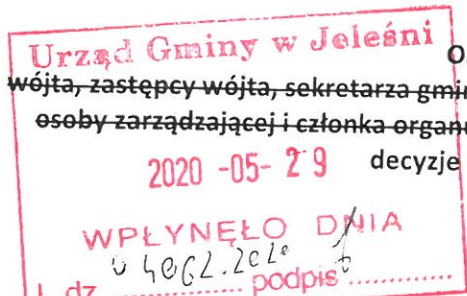 Urząd Gminy w Jeleśni
wójta, zastępcy wójta, sekretarza
osoby zarządzającej i członka
2020 -05- 29 decyzje
WPŁYNĘŁO DNIA
L. dz. .............. podpis ..............